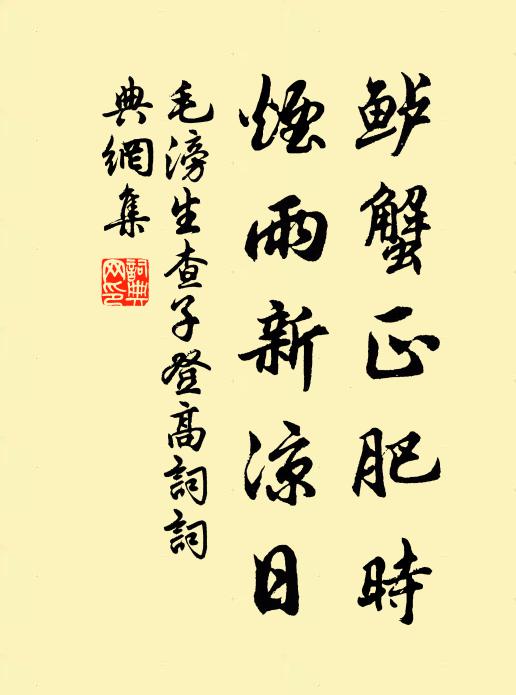 鲈蟹正肥時
煙雨新涼日
毛滂生查子登高詞詞
典網集
詞典
网印